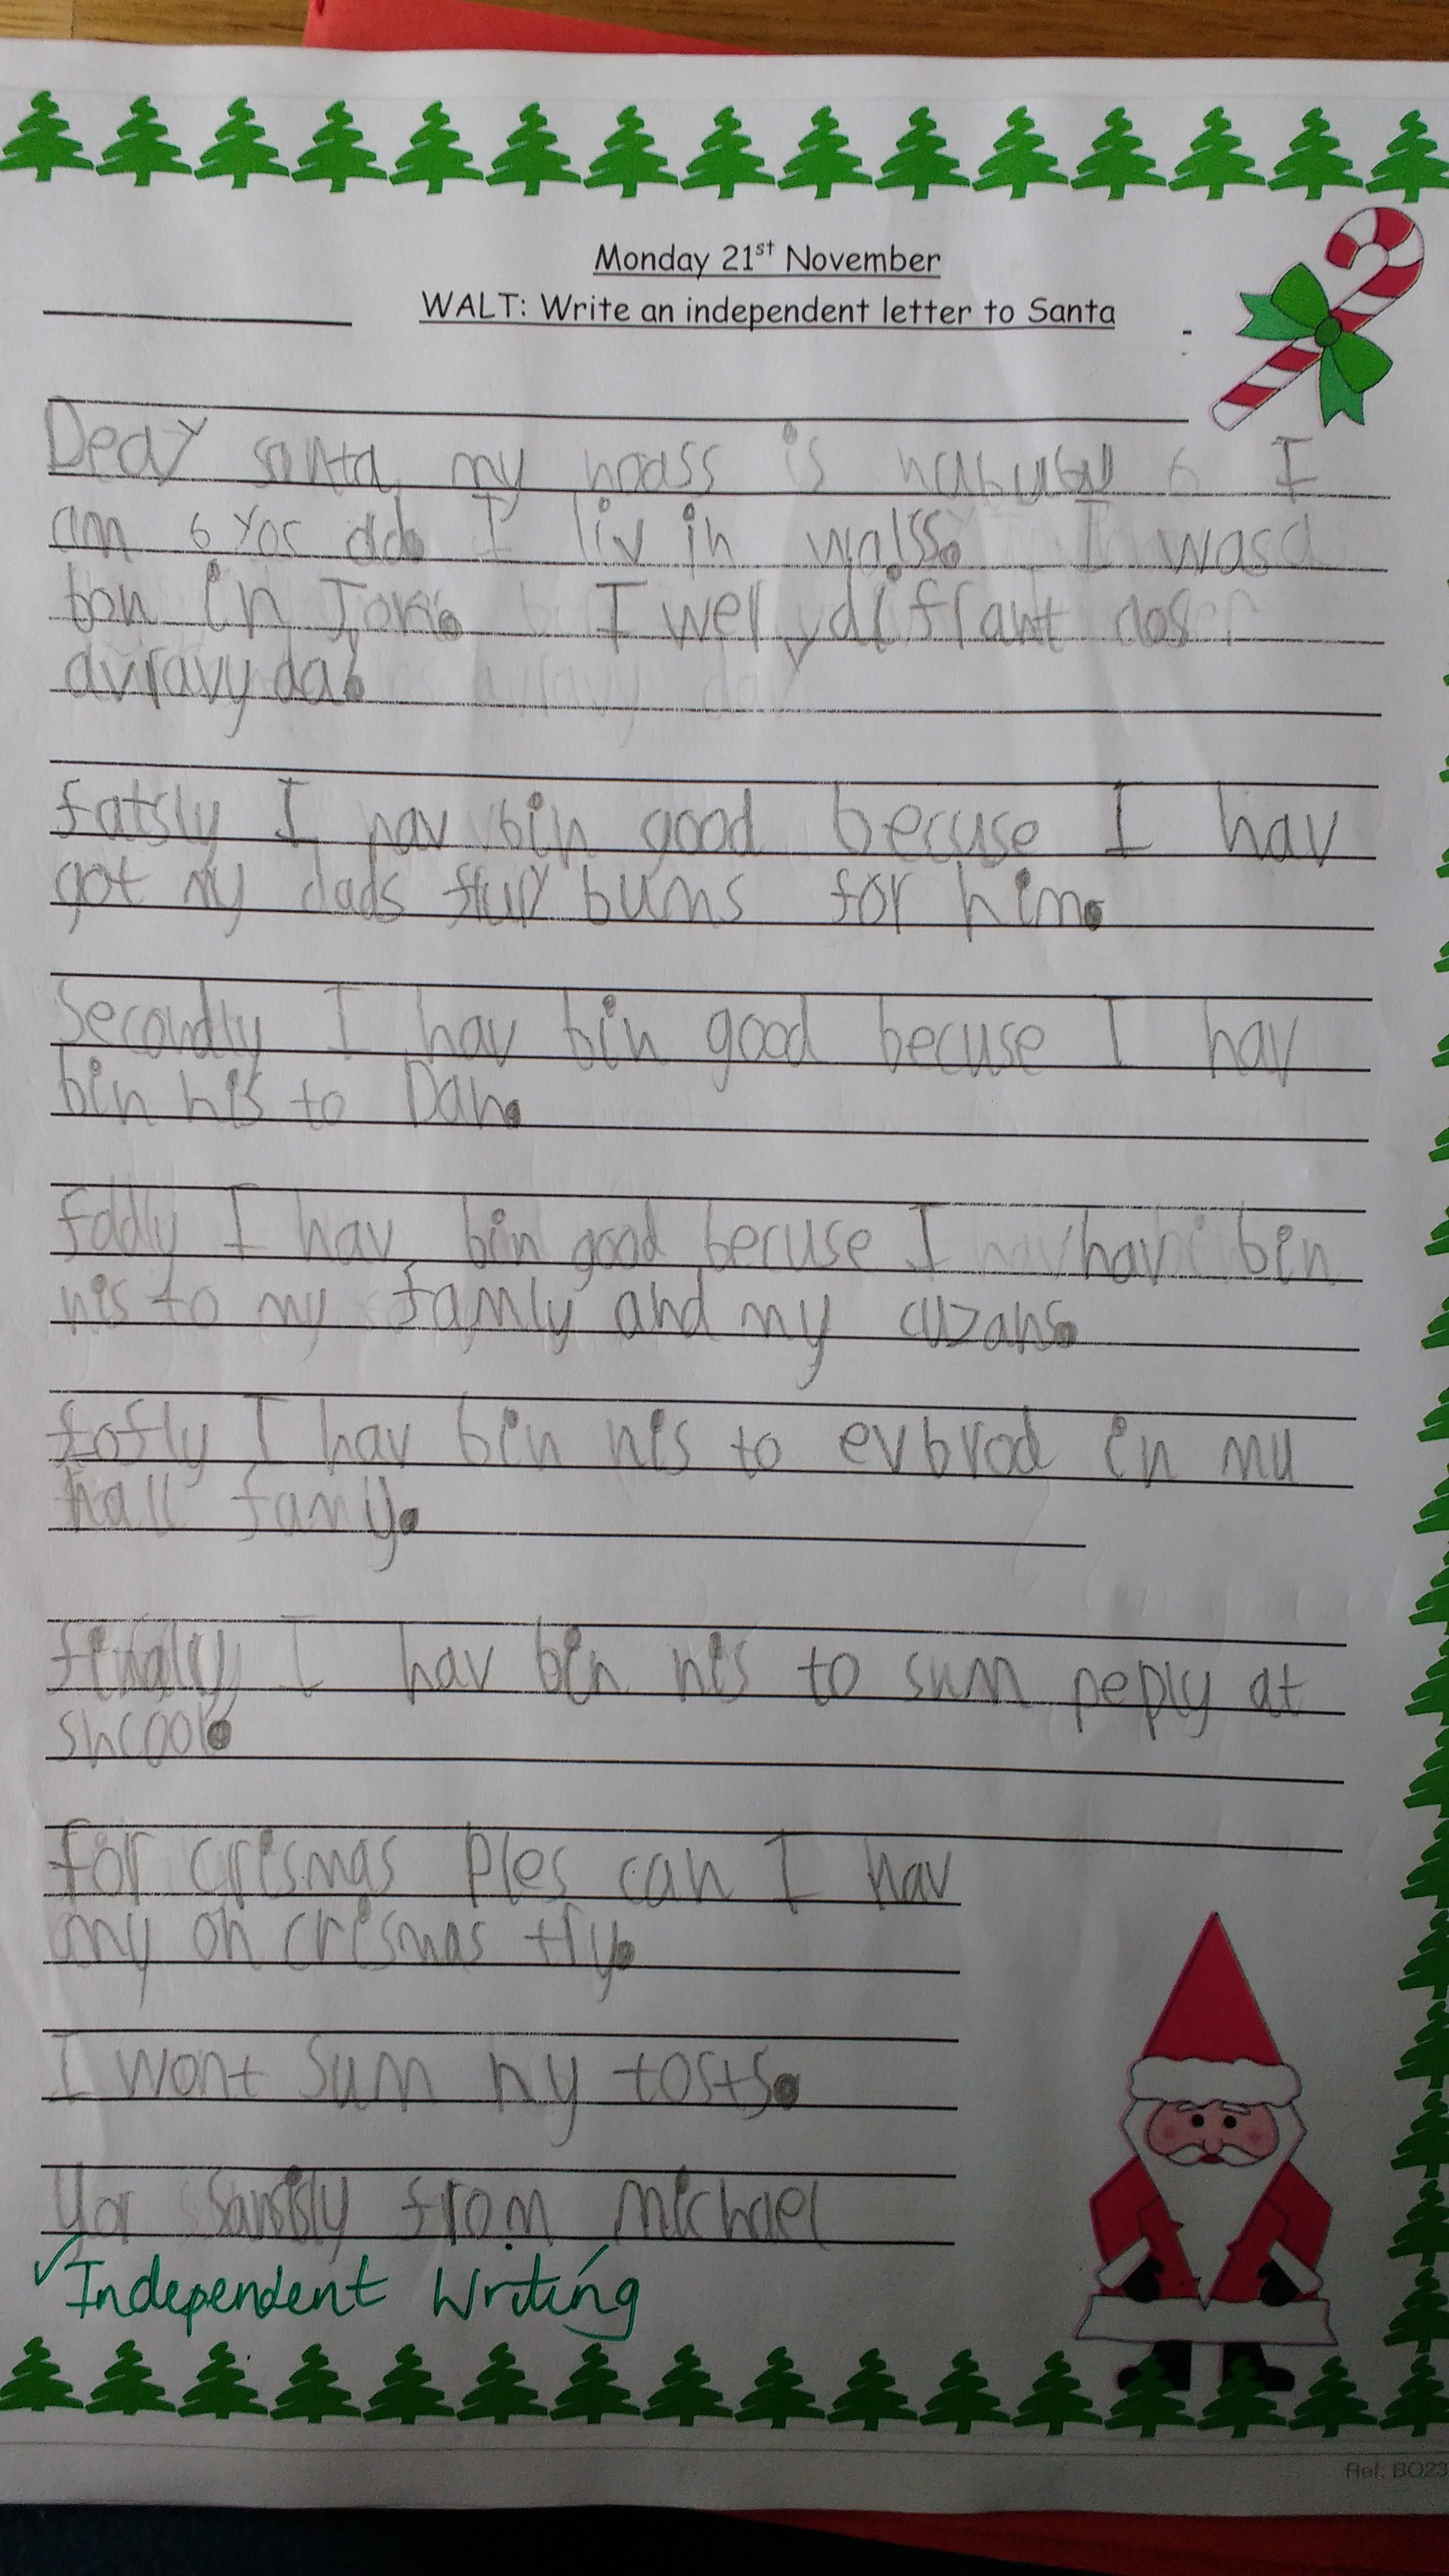 Monday 21st November
WALT: Write an independent letter to Santa
Dear santa my hoass is 6 I
am 6 yos old. I liv in walss. I was
bon in I wer diffrant
avravy da.
fatsly I hav bin good becuse I hav
got my dads bums for him.
Secondly I hav bin good becuse I hav
bin nis to Dan.
fddly I hav bin good becuse I hav bin
nis to my famly and my cuzans.
fofly I hav bin nis to evbrod in my
hall famy.
finally I hav bin nis to sum peply at
shcool.
for crismas ples can I hav
my on crismas try.
I wont sum ny tosts.
yor from michael
Independent Writing
Ref. BO23